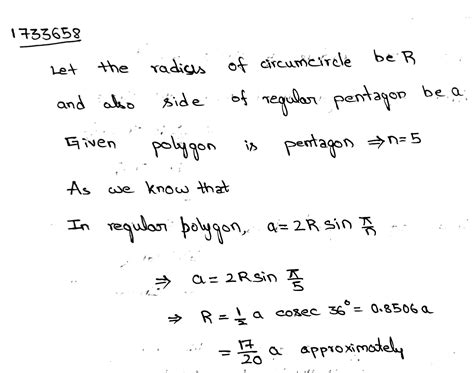 1733658
Let the radius of circumcircle be R
and also side of regular pentagon be a
Given polygon is pentagon ⇒ n=5
As we know that
In regular polygon, a = 2R sin π/n
⇒ a = 2R sin π/5
⇒ R = 1/2 a cosec 36° = 0.8506 a
= 17/20 a approximately